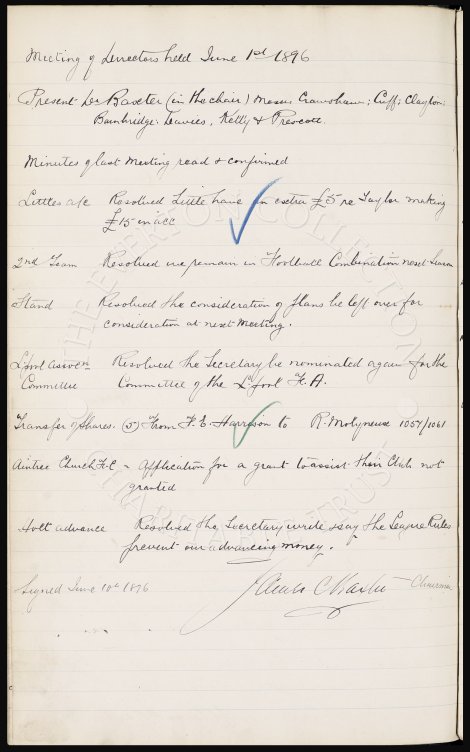 Meeting of Directors held June 1st 1896
Present Dr Baxter (in the chair) Messrs Crawshaw; Cuff; Clayton.
Bainbridge. Davies, Kelly & Prescott.
Minutes of last Meeting read & confirmed
Littles a/c Resolved Little have an extra £5 re Taylor making
£15 in acc
2nd Team Resolved we remain in Football Combination next Season
Stand Resolved the consideration of plans be left over for
consideration at next Meeting.
L'pool Assocn Resolved the Secretary be nominated again for the
Committee Committee of the L'pool F.A.
Transfer of Shares. (5) From F.E. Harrison to R. Molyneux 1057/1061
Aintree Church F.C - Application for a grant to assist their Club not
granted
Holt advance Resolved the Secretary write & say the League Rules
prevent our advancing money.
Signed June 10th 1896 James C Baxter Chairman
THE EVERTON COLLECTION
CHARITABLE TRUST